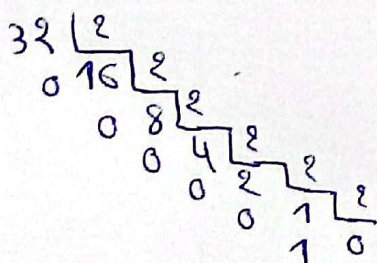 32 2
0 16 2
0 8 2
0 4 2
0 2 2
0 1 2
1 0